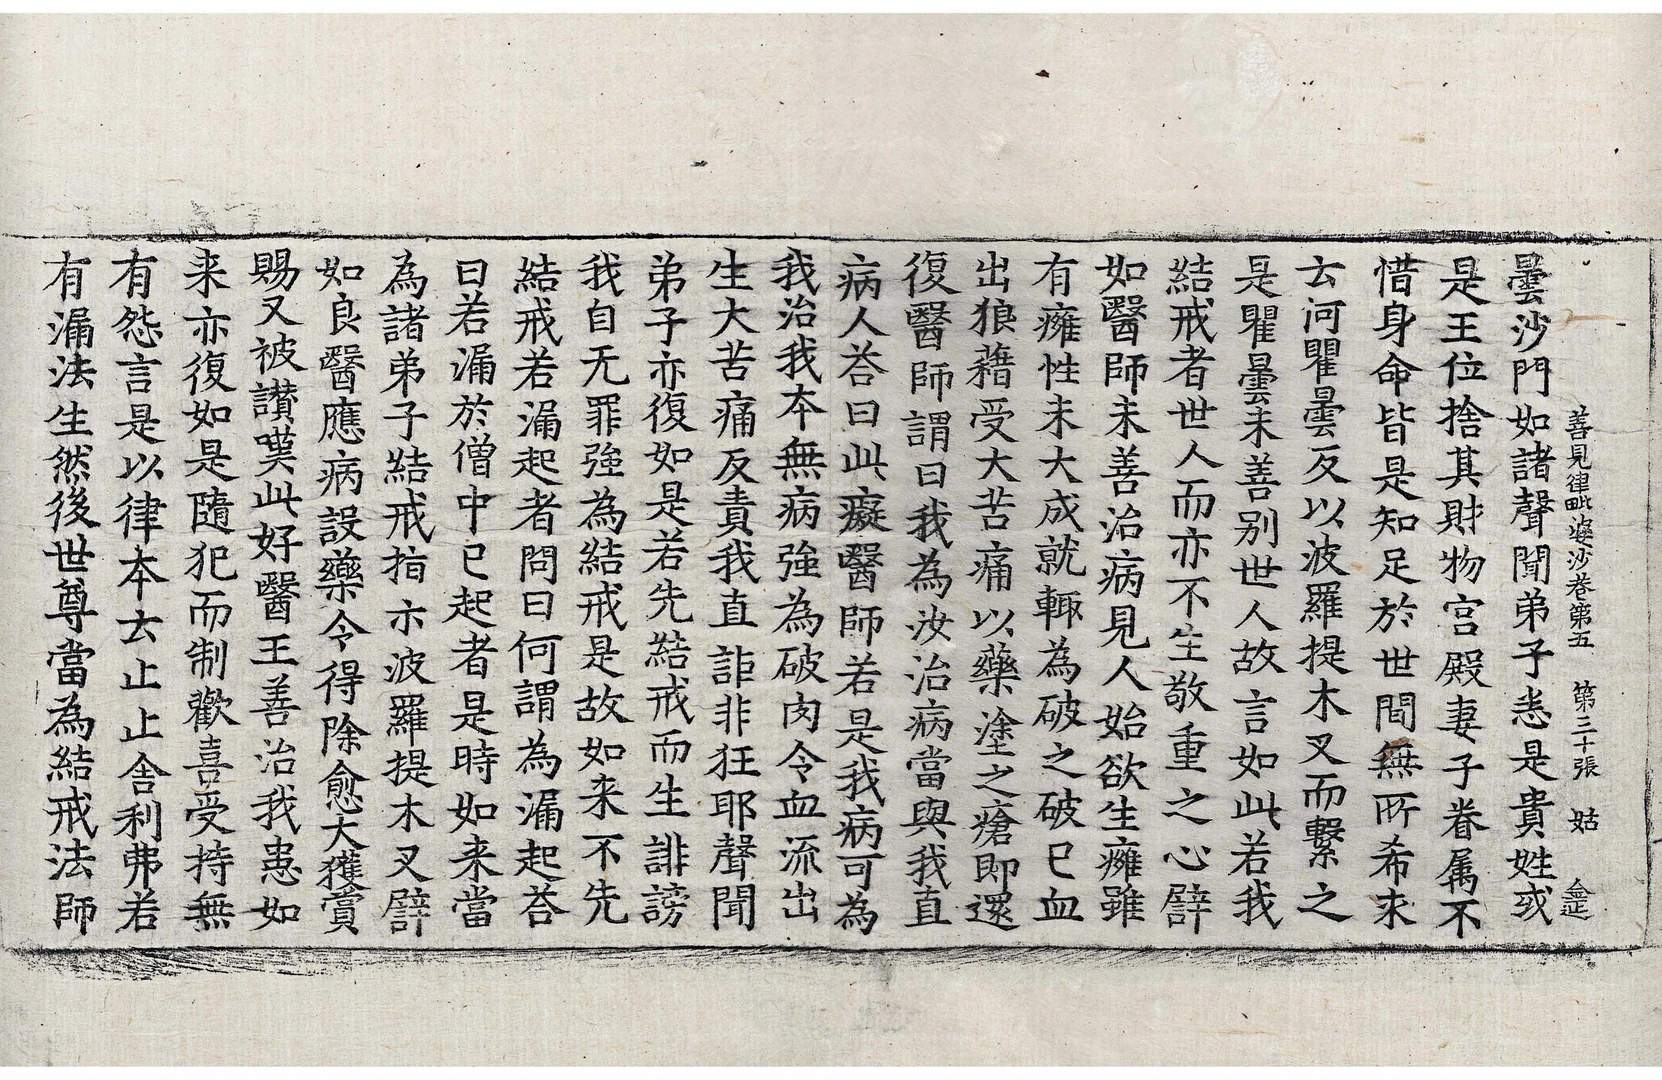 善見律毗婆沙卷第五　第三十張　姑
曇沙門如諸聲聞弟子悉是貴姓或
是王位捨其財物宮殿妻子眷属不
惜身命皆是知足於世間無所希求
云何瞿曇反以波羅提木叉而繫之
是瞿曇未善別世人故言如此若我
結戒者世人而亦不生敬重之心譬
如醫師未善治病見人始欲生癰雖
有癰性未大成就輙為破之破已血
出狼藉受大苦痛以藥塗之瘡即還
復醫師謂曰我為汝治病當與我直
病人荅曰此癡醫師若是我病可為
我治我夲無病強為破肉令血流出
生大苦痛反責我直詎非狂耶聲聞
弟子亦復如是若先結戒而生誹謗
我自无罪強為結戒是故如来不先
結戒若漏起者問曰何謂為漏起荅
曰若漏於僧中已起者是時如来當
為諸弟子結戒指示波羅提木叉譬
如良醫應病設藥令得除愈大獲賞
賜又被讃嘆此好醫王善治我患如
来亦復如是隨犯而制歡喜受持無
有怨言是以律夲云止止舍利弗若
有漏法生然後世尊當為結戒法師